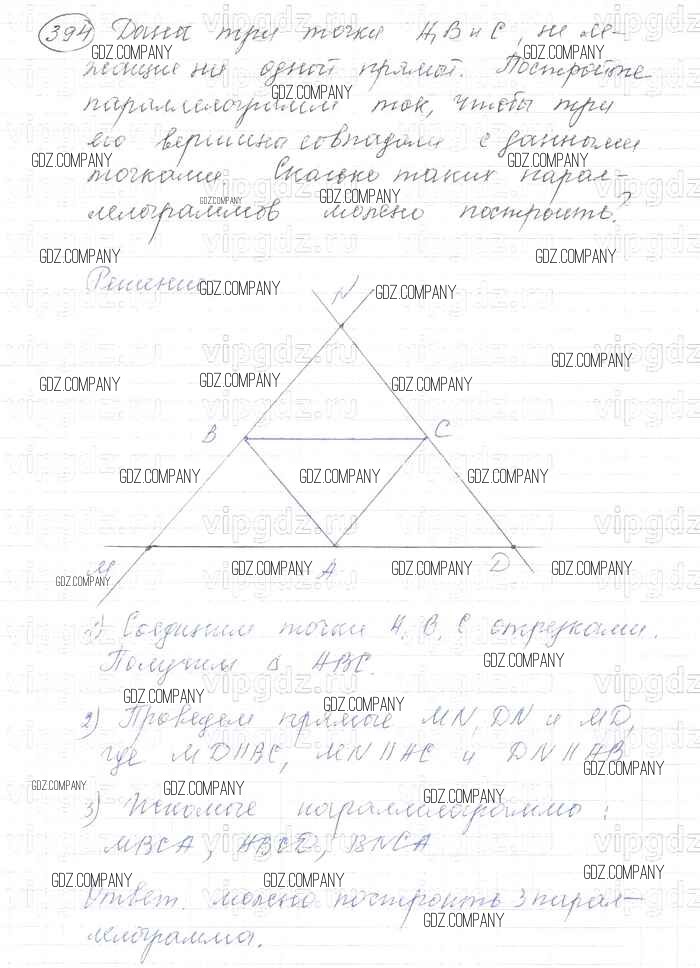 394 Даны три точки A, B и C, не ле-
жащие на одной прямой. Постройте
параллелограмм так, чтобы три
его вершины совпадали с данными
точками. Сколько таких парал-
лелограммов можно построить?
Решение
N
B
C
M
A
D
1) Соединим точки A, B, C отрезками.
Получим Δ ABC.
2) Проведем прямые MN, DN и MD,
где MD||BC, MN||AC и DN||AB
3) Искомые параллелограммы:
MBCA, ABCD, BNCA
Ответ. можно построить 3 парал-
лелограмма.
GDZ.COMPANY
vipgdz.ru